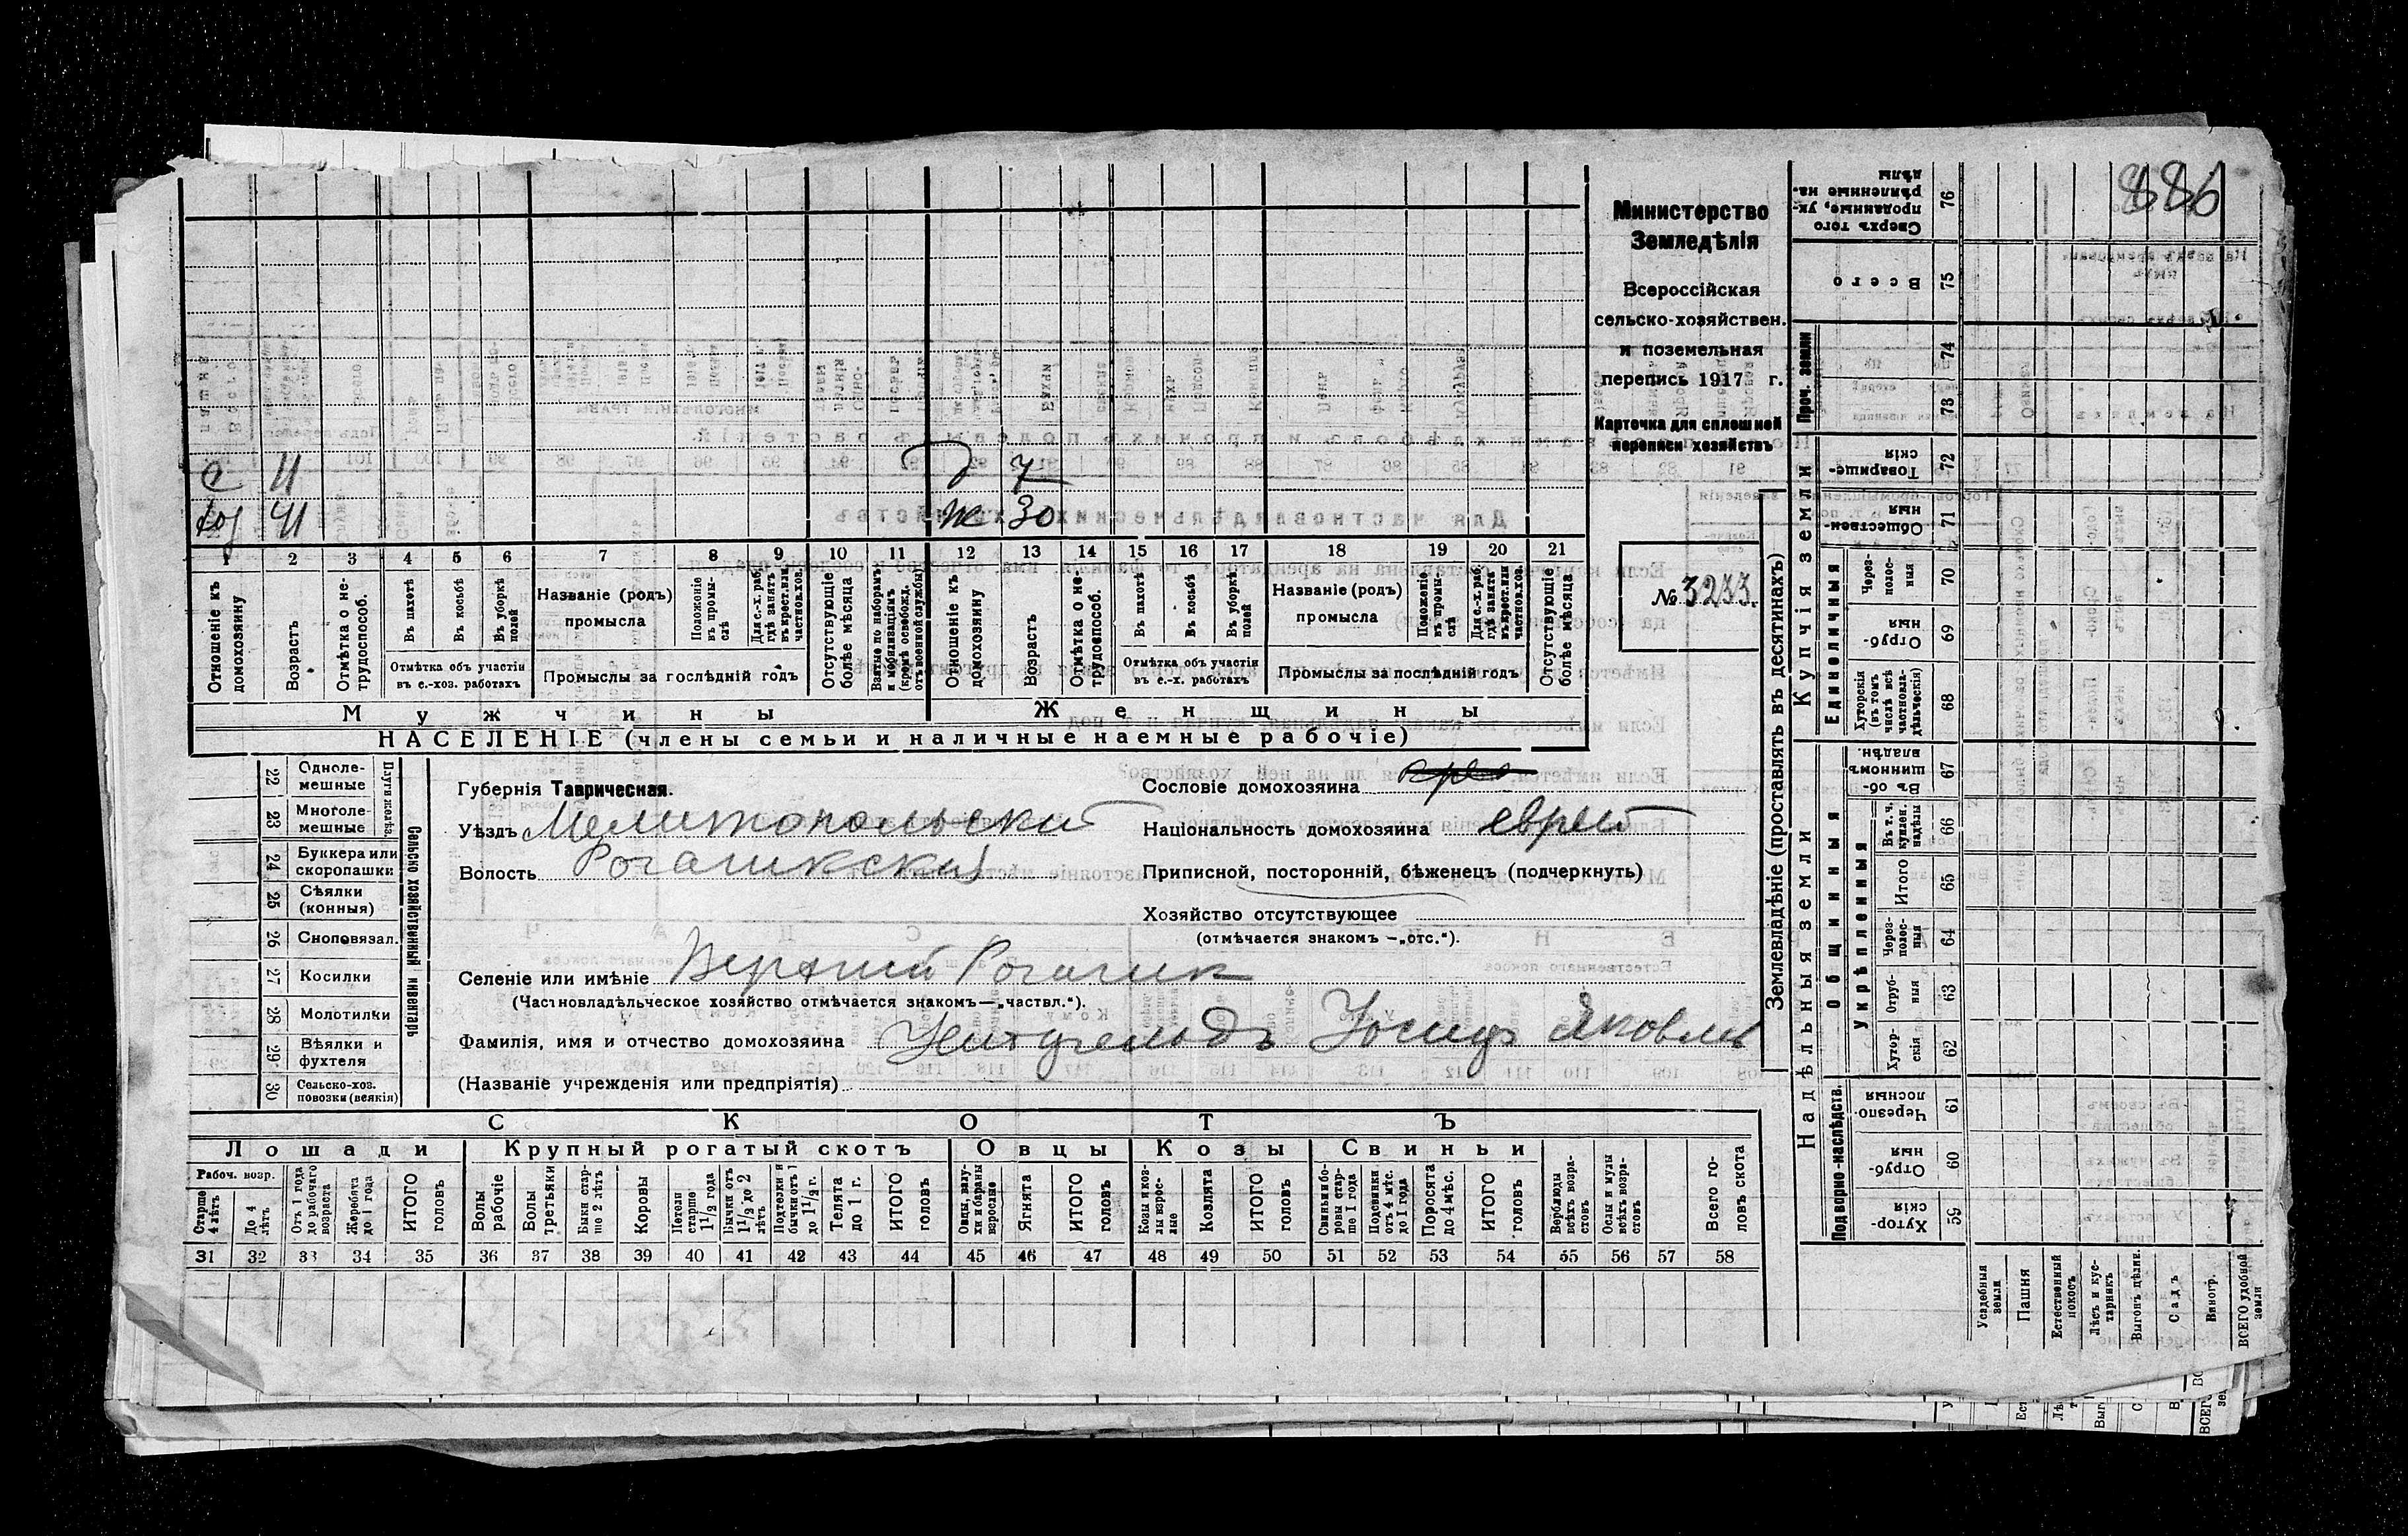 886
Министерство
Земледѣлія
Всероссійская
сельско-хозяйствен.
и поземельная
перепись 1917 г.
Карточка для сплошной
переписи хозяйствъ
№ 3233.
с 11 д 7
41 ж 30
1 2 3 4 5 6 7 8 9 10 11 12 13 14 15 16 17 18 19 20 21
Отношеніе къ домохозяину
Возрастъ
Отмѣтка о не-трудоспособ.
Въ пахотѣ
Въ косьбѣ
Въ уборкѣ полей
Отмѣтка объ участіи въ с.-хоз. работахъ
Названіе (родъ) промысла
Положеніе въ промы-слѣ
Для с.-х. раб. гдѣ занятъ въ крест. или частн. хоз.
Промыслы за послѣдній годъ
Отсутствующіе болѣе мѣсяца
Взятые по наборамъ и мобилизаціямъ (кромѣ освобожд. отъ военной службы)
Отношеніе къ домохозяину
Возрастъ
Отмѣтка о не-трудоспособ.
Въ пахотѣ
Въ косьбѣ
Въ уборкѣ полей
Отмѣтка объ участіи въ с.-х. работахъ
Названіе (родъ) промысла
Положеніе въ промы-слѣ
Для с.-х. раб. гдѣ занята въ крест. или частн. хоз.
Промыслы за послѣдній годъ
Отсутствующіе болѣе мѣсяца
Мужчины Женщины
НАСЕЛЕНІЕ (члены семьи и наличные наемные рабочіе)
22 Одноле-мешные
23 Многоле-мешные
24 Буккера или скоропашки
25 Сѣялки (конныя)
26 Сноповязал.
27 Косилки
28 Молотилки
29 Вѣялки и фухтеля
30 Сельско-хоз. повозки (всякія)
Сельско хозяйственный инвентарь
Губернія Таврическая.
Уѣздъ Мелитопольский
Волость Рогачикская
Сословіе домохозяина
Національность домохозяина еврей
Приписной, посторонній, бѣженецъ (подчеркнуть)
Хозяйство отсутствующее
(отмѣчается знакомъ —„отс.“).
Селеніе или имѣніе Верхний Рогачик
(Частновладѣльческое хозяйство отмѣчается знакомъ—„частвл.“).
Фамилія, имя и отчество домохозяина Иосиф Яковлев
(Названіе учрежденія или предпріятія)
СКОТЪ
Лошади Крупный рогатый скотъ Овцы Козы Свиньи
Рабоч. возр.
Старше 4 лѣтъ
До 4 лѣтъ
Отъ 1 года до рабочаго возраста
Жеребята до 1 года
ИТОГО головъ
Волы рабочіе
Волы третьяки
Быки стар-ше 2 лѣтъ
Коровы
Нетели старше 1 1/2 года
Бычки отъ 1 1/2 до 2 лѣтъ
Подтелки и бычки отъ 1 до 1 1/2 г.
Телята до 1 г.
ИТОГО головъ
Овцы, валу-хи и бараны взрослые
Ягнята
ИТОГО головъ
Козы и коз-лы взрос-лые
Козлята
ИТОГО головъ
Свиньи и бо-ровы стар-ше 1 года
Подсвинки отъ 4 мѣс. до 1 года
Поросята до 4 мѣс.
ИТОГО головъ
Верблюды всѣхъ возра-стовъ
Ослы и мулы всѣхъ возра-стовъ
Всего го-ловъ скота
31 32 33 34 35 36 37 38 39 40 41 42 43 44 45 46 47 48 49 50 51 52 53 54 55 56 57 58
Землевладѣніе (проставлять въ десятинахъ)
Надѣльныя земли
Купчія земли
Проч. земли
Подворно-наслѣдств.
Общинныя
Укрѣпленныя
Единоличныя
76 Сверхъ того проданные, ук-рѣпленные на-дѣлы
75 Всего
74
73
72 Товарище-скія
71 Обществен-ныя
70 Через-полос-ныя
69 Отруб-ныя
68 Хуторскія (въ томъ числѣ всѣ частновла-дѣльческія)
67 Въ об-щинномъ владѣн.
66 Въ т. ч. куплен. надѣлы
65 Итого
64 Через-полос-ныя
63 Отруб-ныя
62 Хутор-скія
61 Черезпо-лосныя
60 Отруб-ныя
59 Хутор-скія
Усадебныя земли
Пашня
Естественный покосъ
Лѣсъ и кус-тарникъ
Выгонъ цѣлин.
Садъ
Виногр.
ВСЕГО удобной земли